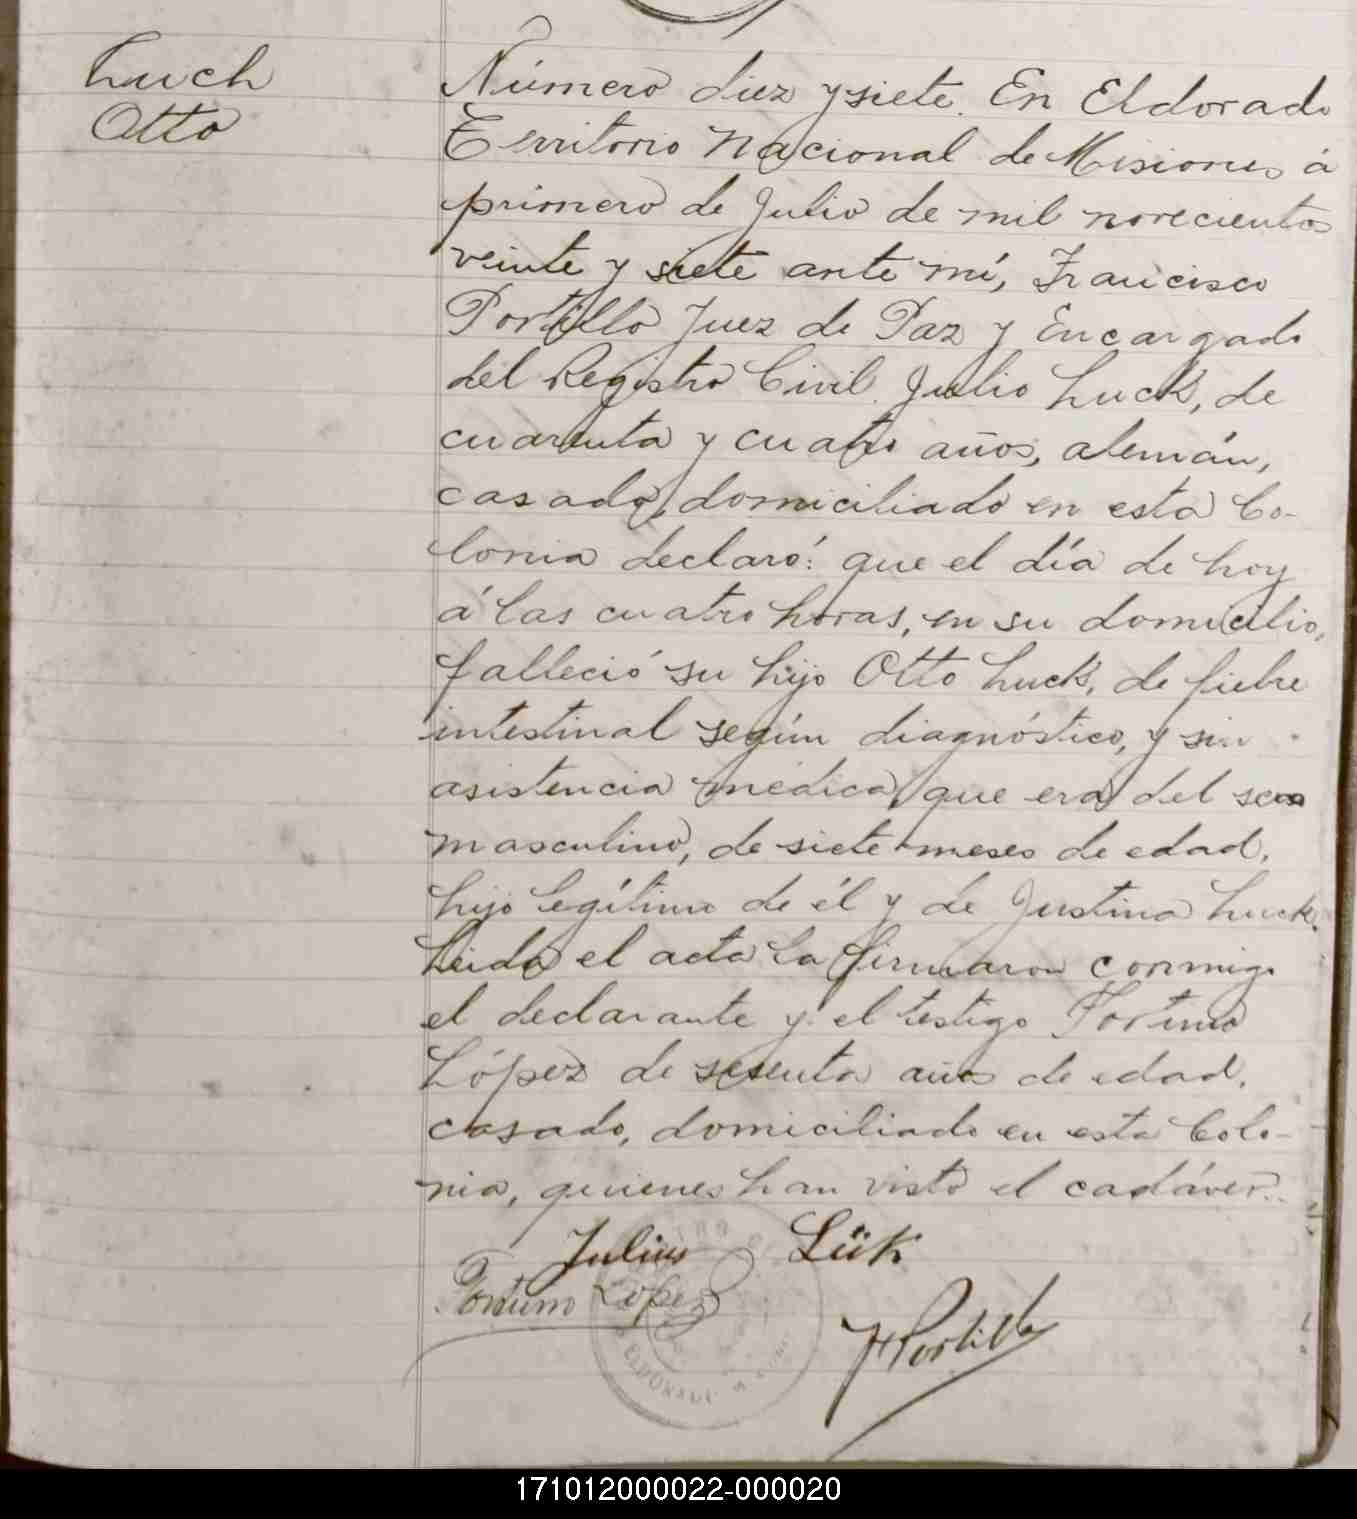 Luch
Otto
Número diez y siete. En Eldorado
Territorio Nacional de Misiones á
primero de Julio de mil novecientos
veinte y siete ante mí, Francisco
Portillo Juez de Paz y Encargado
del Registro Civil. Julio Luck, de
cuarenta y cuatro años, alemán,
casado, domiciliado en esta Co-
lonia declaró: que el día de hoy
á las cuatro horas, en su domicilio,
falleció su hijo Otto Luck, de fiebre
intestinal según diagnóstico, y sin
asistencia médica, que era del sexo
masculino, de siete meses de edad,
hijo legítimo de él y de Justina Luck.
Leida el acta la firmaron conmigo
el declarante y el testigo Fortuno
López de sesenta años de edad,
casado, domiciliado en esta Colo-
nia, quienes han visto el cadáver.
Julius Lük
Fortuno López
F Portillo
ELDORADO
171012000022-000020